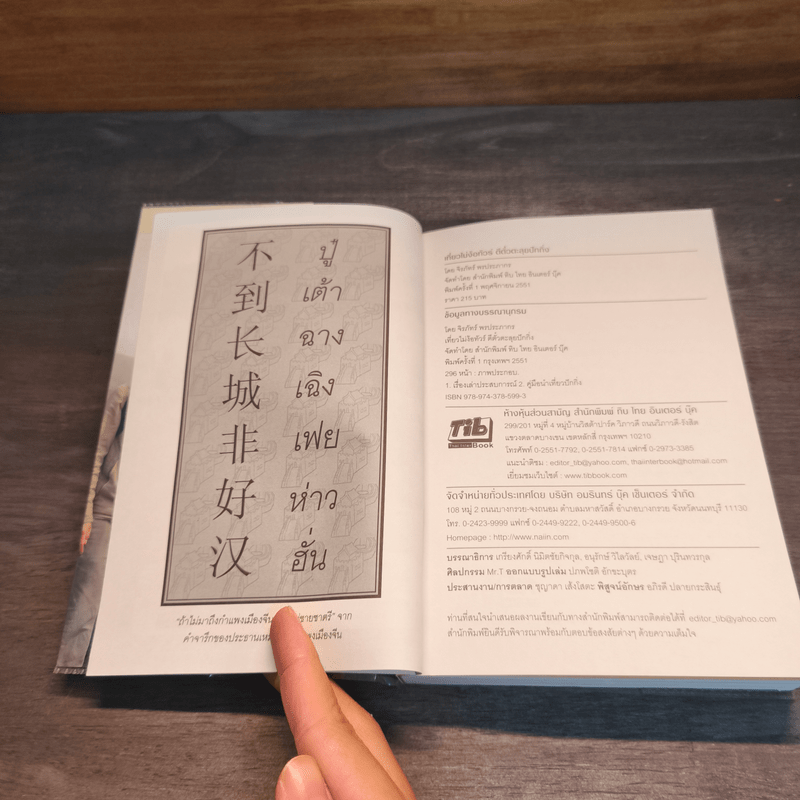 不 ปู๋
到 เต้า
长 ฉาง
城 เฉิง
非 เฟย
好 ห่าว
汉 ฮั่น
"ถ้าไม่มาถึงกำแพงเมืองจีน ชายชาตรี" จาก
คำจารึกของประธานเหมา เมืองจีน
เที่ยวไม่ง้อทัวร์ ตีตั๋วตะลุยปักกิ่ง
โดย จิงภัทร์ พรประภากร
จัดทำโดย สำนักพิมพ์ ทิบ ไทย อินเตอร์ บุ๊ค
พิมพ์ครั้งที่ 1 พฤศจิกายน 2551
ราคา 215 บาท
ข้อมูลทางบรรณานุกรม
โดย จิงภัทร์ พรประภากร
เที่ยวไม่ง้อทัวร์ ตีตั๋วตะลุยปักกิ่ง
จัดทำโดย สำนักพิมพ์ ทิบ ไทย อินเตอร์ บุ๊ค
พิมพ์ครั้งที่ 1 กรุงเทพฯ 2551
296 หน้า : ภาพประกอบ.
1. เรื่องเล่าประสบการณ์ 2. คู่มือนำเที่ยวปักกิ่ง
ISBN 978-974-378-599-3
Tib
Book
ห้างหุ้นส่วนสามัญ สำนักพิมพ์ ทิบ ไทย อินเตอร์ บุ๊ค
299/201 หมู่ที่ 4 หมู่บ้านวิสต้าปาร์ค วิภาวดี ถนนวิภาวดี-รังสิต
แขวงตลาดบางเขน เขตหลักสี่ กรุงเทพฯ 10210
โทรศัพท์ 0-2551-7792, 0-2551-7814 แฟกซ์ 0-2973-3385
แนะนำติชม : editor_tib@yahoo.com, thaiinterbook@hotmail.com
เยี่ยมชมเว็บไซต์ : www.tibbook.com
จัดจำหน่ายทั่วประเทศโดย บริษัท อมรินทร์ บุ๊ค เซ็นเตอร์ จำกัด
108 หมู่ 2 ถนนบางกรวย-จงถนอม ตำบลมหาสวัสดิ์ อำเภอบางกรวย จังหวัดนนทบุรี 11130
โทร. 0-2423-9999 แฟกซ์ 0-2449-9222, 0-2449-9500-6
Homepage : http://www.naiin.com
บรรณาธิการ เกรียงศักดิ์ นิมิตชัยกิจกุล, อนุรักษ์ วิไลวัลย์, เจษฎา ปุรินทวรกุล
ศิลปกรรม Mr.T ออกแบบรูปเล่ม ปภพโชติ อักขะบุตร
ประสานงาน/การตลาด ชุญาดา เส็งโตตะ พิสูจน์อักษร อภิรดี ปลายกระสินธุ์
ท่านที่สนใจนำเสนอผลงานเขียนกับทางสำนักพิมพ์สามารถติดต่อได้ที่ editor_tib@yahoo.com
สำนักพิมพ์ยินดีรับพิจารณาพร้อมกับตอบข้อสงสัยต่างๆ ด้วยความเต็มใจ